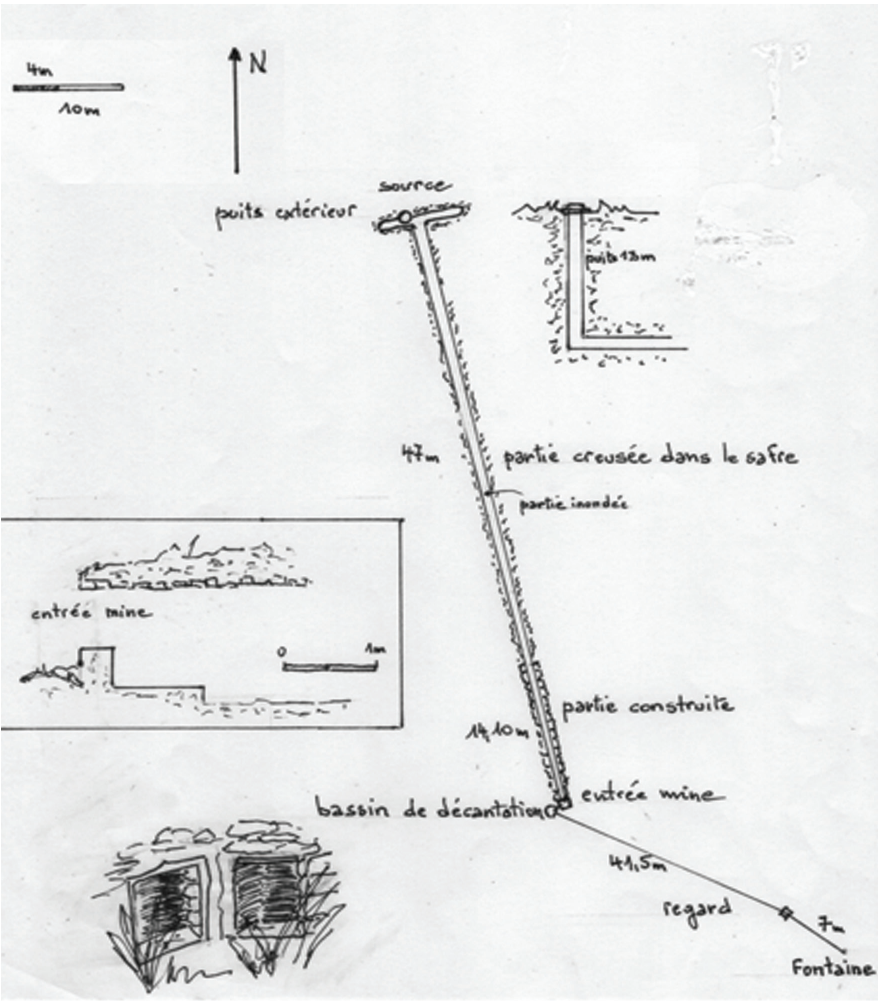 4m
10m
N
source
puits extérieur
puits 13m
47m
partie creusée dans le safre
partie inondée
entrée mine
0
1m
partie construite
14,10m
entrée mine
bassin de décantation
41,5m
regard
7m
Fontaine